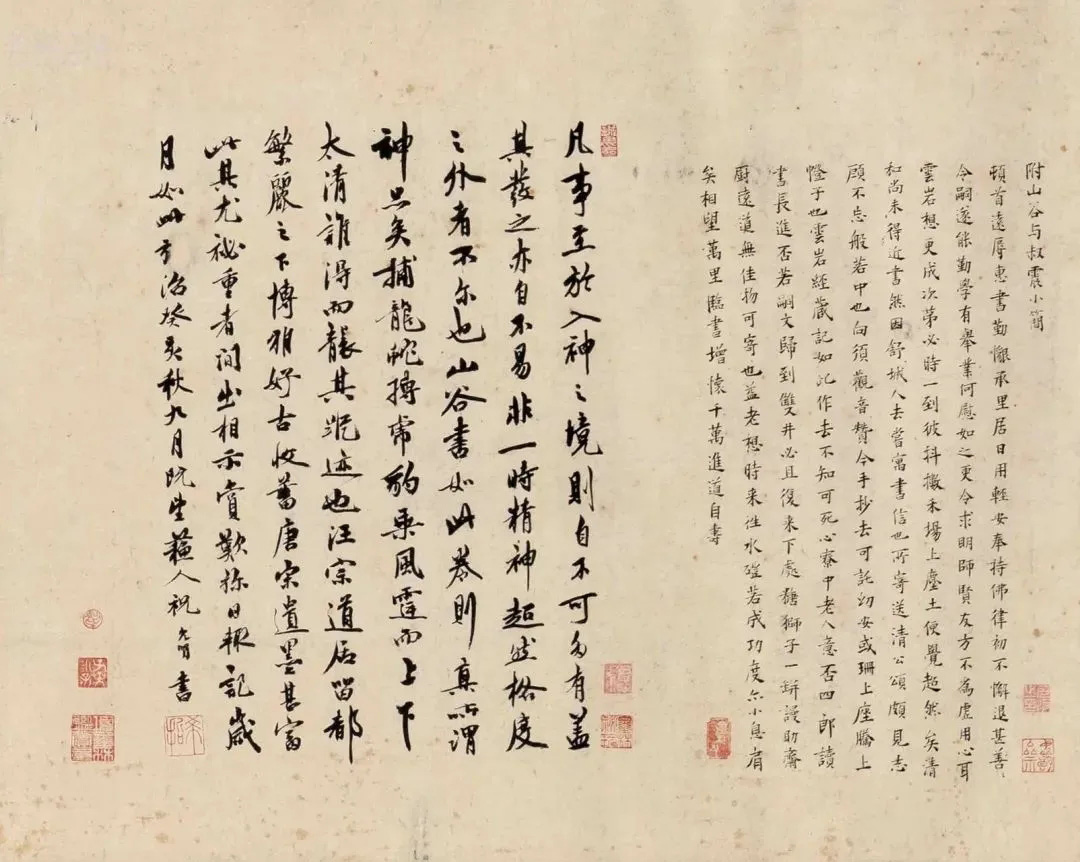 附山谷与叔震小简
頓首遠辱惠書勤懇承里居日用輕安奉持佛律初不懈退甚善
令嗣遂能勤學有舉業何慰如之更令求明師賢友方不為虛用心耳
雲岩想更成次第必時一到彼抖擻禾場上塵土便覺超然矣清
和尚未得近書然因舒城人去嘗寓書信也所寄送清公頌頗見志
願不忘般若中也向須觀音贊今手抄去可託幼安或珊上座騰上
憕子也雲岩經藏記如此作去不知可死心寮中老人意否四郎讀
書長進否若嗣文歸到雙井必且復來下處糖獅子一缾謾助齋
厨遠道無佳物可寄也益老想時来往水磑若成功度亦小息肩
矣相望萬里臨書增懷千萬進道自壽
凡事至於入神之境則自不可多有蓋
其發之亦自不易非一時精神超然格度
之外者不尔也山谷書如此卷則真所謂
神品矣捕龍蛇搏虎豹乘風霆而上下
太清誰得而襲其踪迹也汪宗道居留都
繁麗之下博雅好古收蓄唐宋遺墨甚富
此其尤祕重者間出相示賞歎弥日輒記歲
月如此弘治癸亥秋九月既望蘇人祝允明書